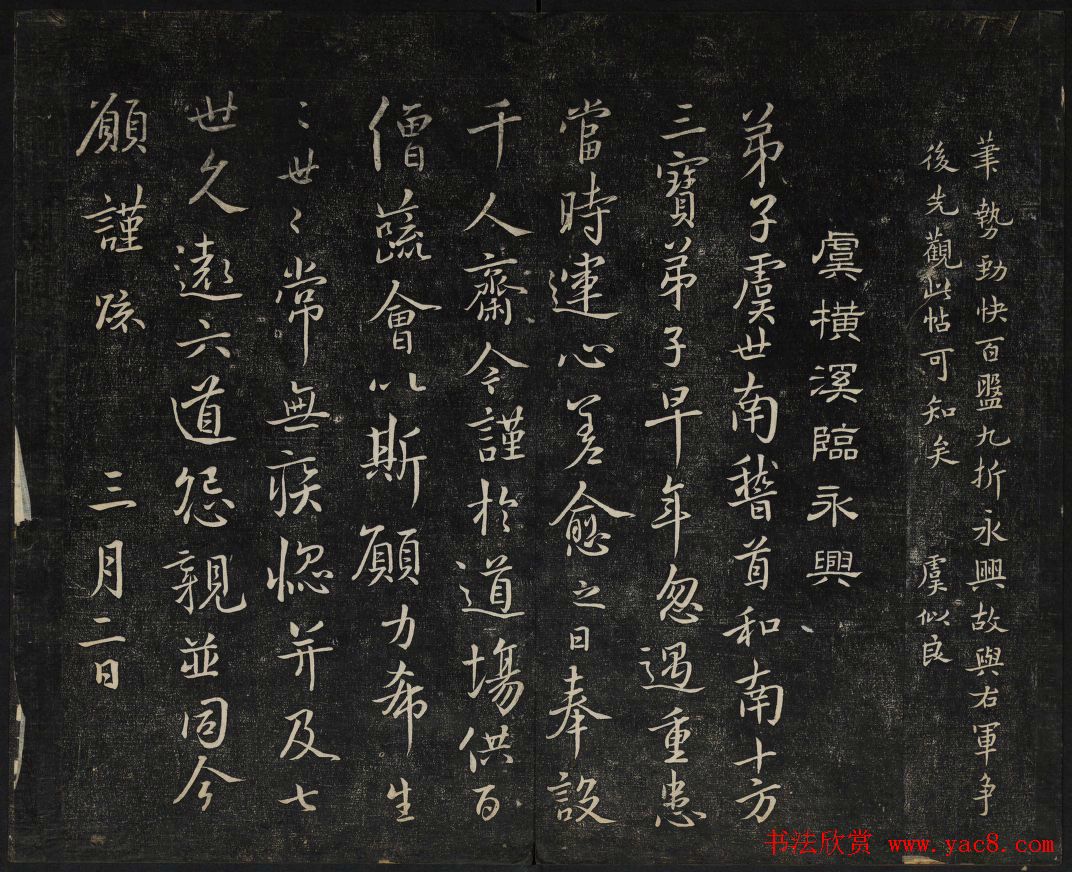 筆勢勁快百盤九折永興故與右軍爭
後先觀此帖可知矣 虞似良
虞橫溪臨永興
弟子虞世南稽首和南十方
三寶弟子早年忽遇重患
當時運心差愈之日奉設
千人齋今謹於道場供百
僧蔬會以斯願力希生
〻世〻常無疾惱并及七
世久遠六道怨親並同今
願謹疏 三月二日
书法欣赏 www.yac8.com